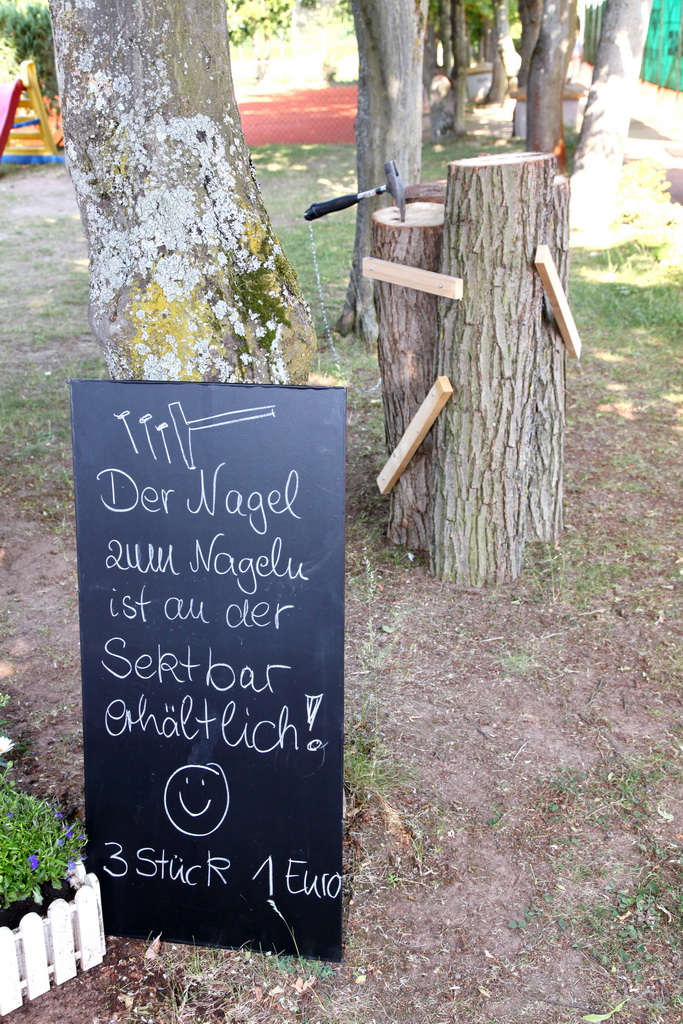 Der Nagel
zum Nageln
ist an der
Sektbar
erhältlich!
3 Stück 1 Euro